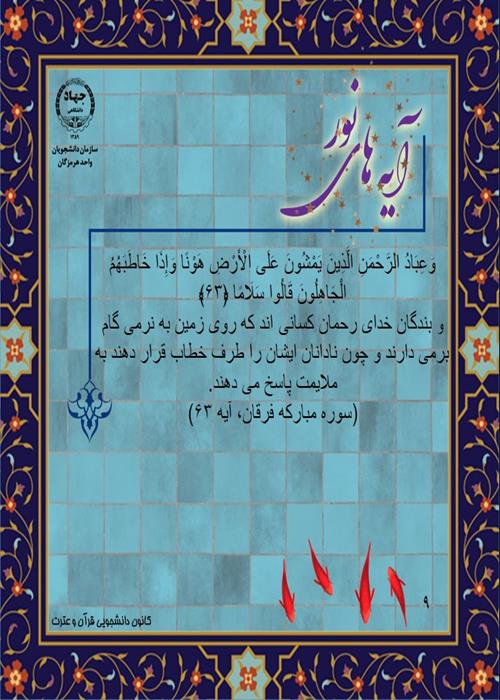 جهاد
دانشگاهی
۱۳۵۹
سازمان دانشجویان
واحد هرمزگان
آیه های نور
وَعِبَادُ الرَّحْمَنِ الَّذِينَ يَمْشُونَ عَلَى الْأَرْضِ هَوْنًا وَإِذَا خَاطَبَهُمُ
الْجَاهِلُونَ قَالُوا سَلَامًا ﴿۶۳﴾
و بندگان خدای رحمان کسانی اند که روی زمین به نرمی گام
برمی دارند و چون نادانان ایشان را طرف خطاب قرار دهند به
ملایمت پاسخ می دهند.
(سوره مبارکه فرقان، آیه ۶۳)
۹
کانون دانشجویی قرآن و عترت